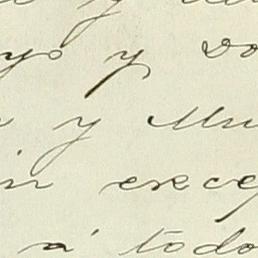 yo y do
y Mu
in excep
á todo